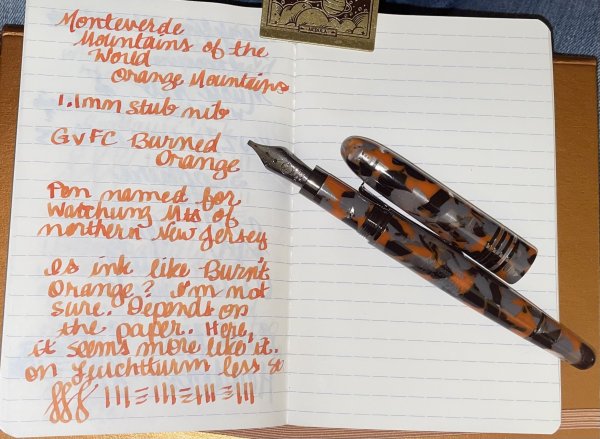 Monteverde
Mountains of the
World
Orange Mountains
1.1mm stub nib
GvFC Burned
Orange
Pen named for
Watchung Mts of
northern New Jersey
Is ink like Burnt
Orange? I'm not
sure. Depends on
the paper. Here,
it seems more like it.
on Leuchtturm less so